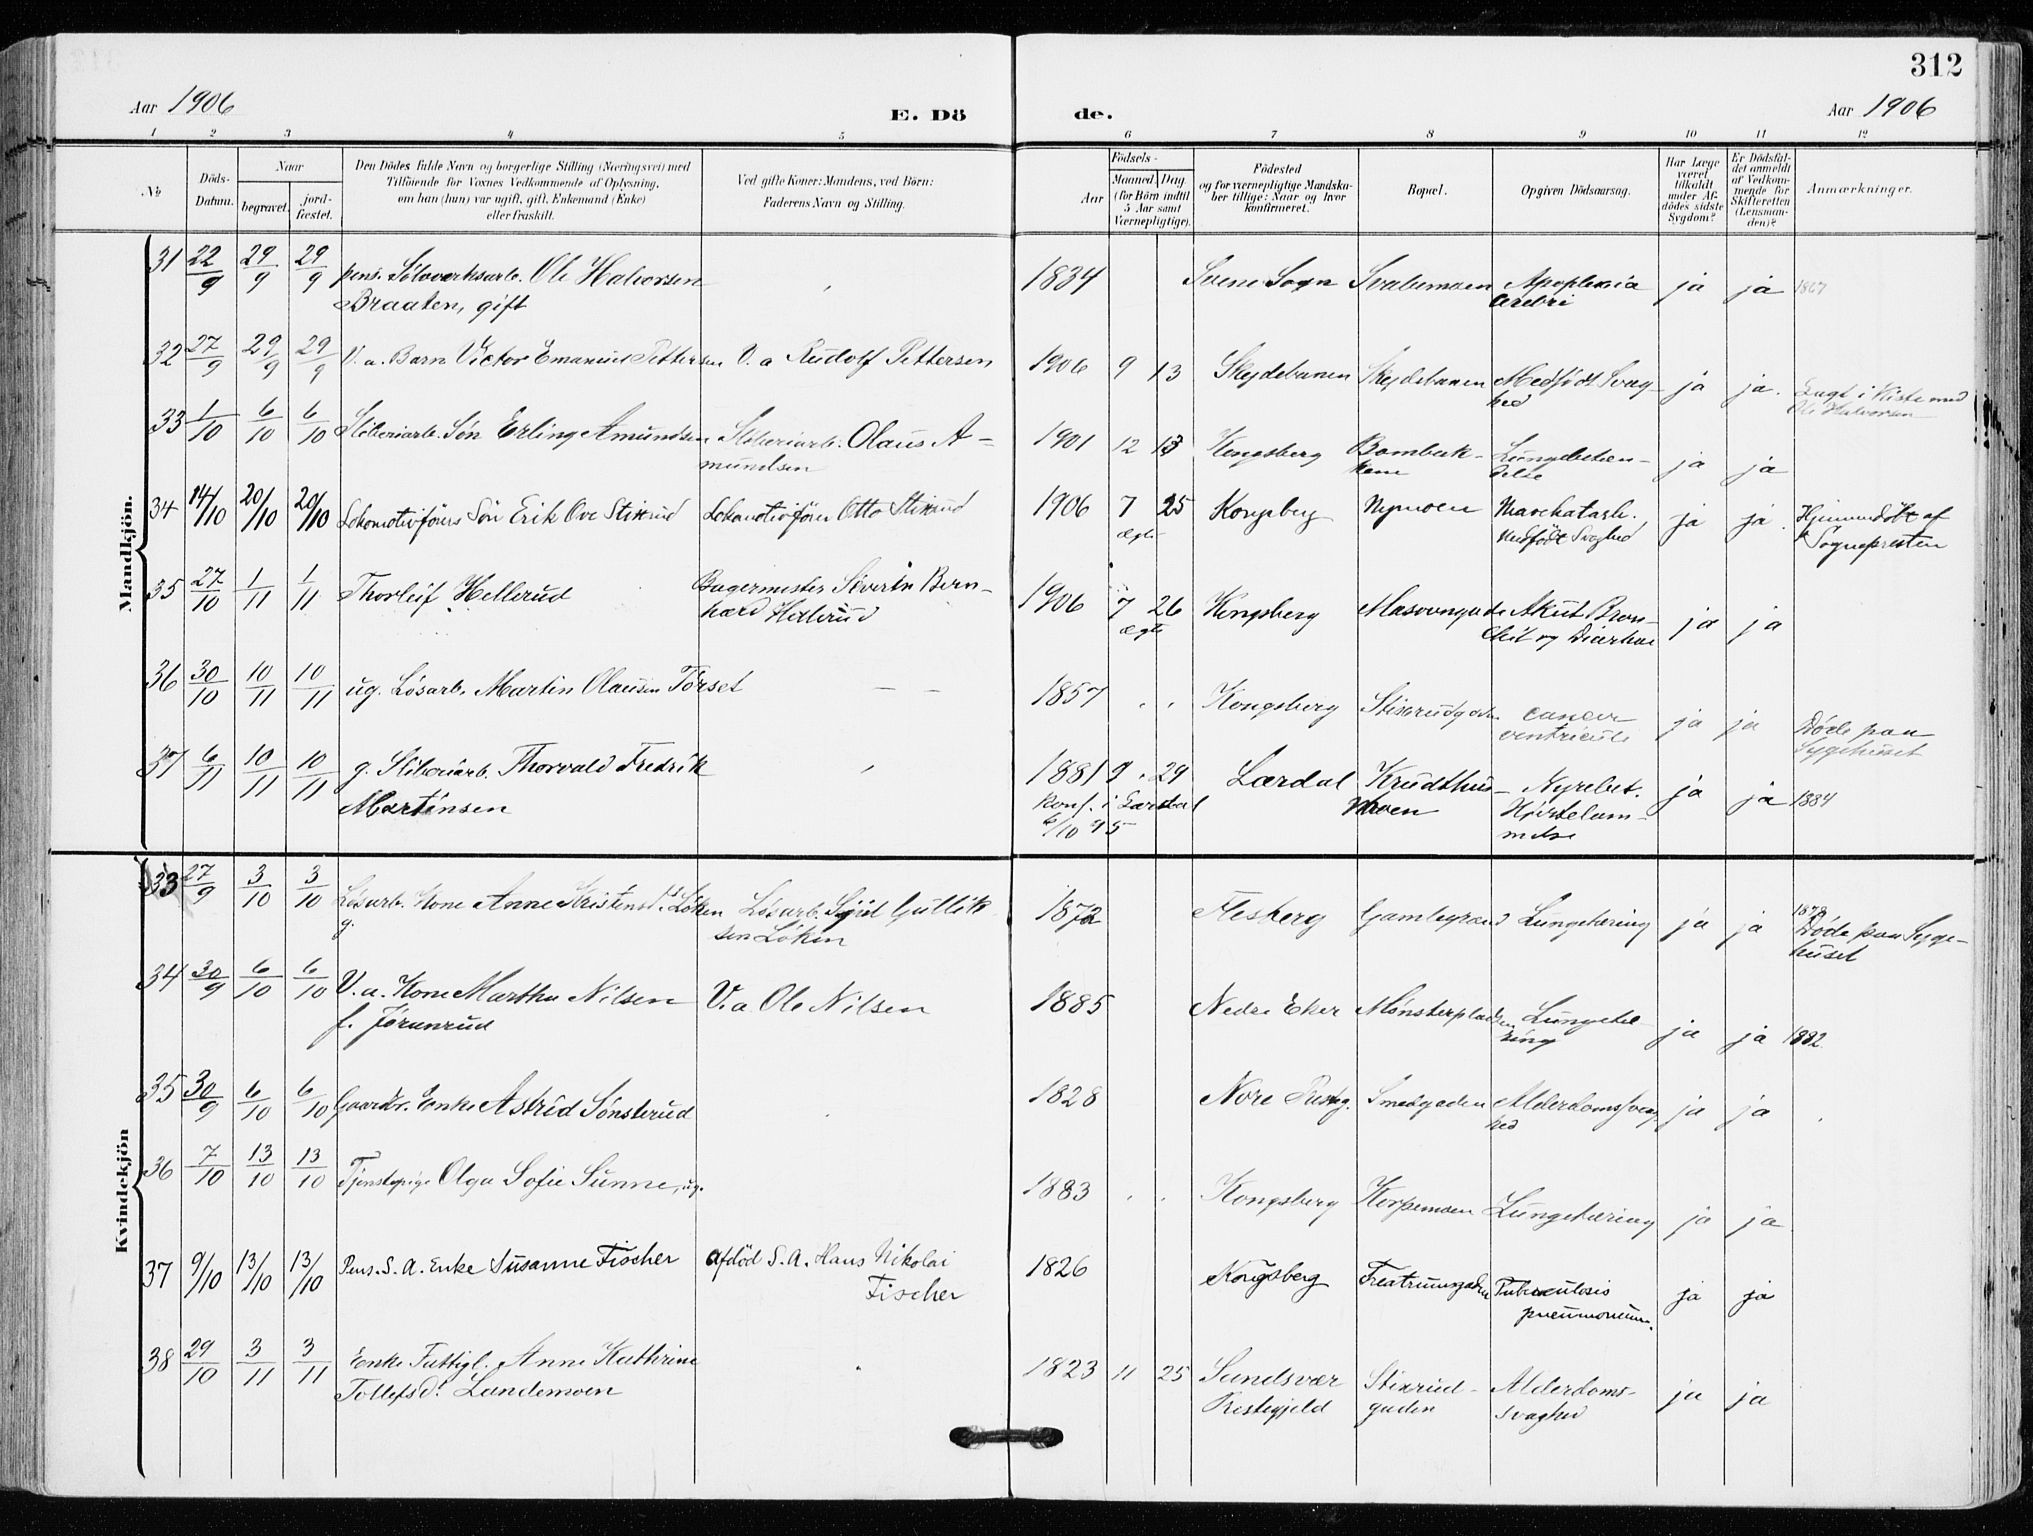 312
Aar 1906
E. Dö
de.
Aar 1906
1 2 3 4 5 6 7 8 9 10 11 12
№
Döds-
Datum.
Naar
begravet.
jord-
fæstet.
Den Dödes fulde Navn og borgerlige Stilling (Næringsvei) med
Tilföiende for Voxnes Vedkommende af Oplysning,
om han (hun) var ugift, gift, Enkemand (Enke)
eller fraskilt.
Ved gifte Koner: Mandens, ved Börn:
Faderens Navn og Stilling.
Födsels-
Aar
Maaned. Dag
(for Börn indtil
5 Aar samt
Værnepligtige).
Födested
og for værnepligtige Mandska-
ber tillige: Naar og hvor
konfirmeret.
Bopæl.
Opgiven Dödsaarsag.
Har Læge
været
tilkaldt
under Af-
dödes sidste
Sygdom?
Er Dödsfal-
det anmeldt
af Vedkom-
mende for
Skifteretten
(Lensman-
den)?
Anmærkninger.
Mandkjön.
31 22/9 29/9 29/9 pens. Sølvverksarb. Ole Halvorsen
Braaten, gift
1834 Svene Sogn Apoplexia
cerebri ja ja 1867
32 27/9 29/9 29/9 V. a. Barn Victor Emanuel Pettersen V. a Rudolf Pettersen
1906 9 13 Skydebanen Skydebanen Medfødt Svag-
hed ja ja. Lagt i Kiste med
Ole Halvorsen
33 1/10 6/10 6/10 Sliberiarb. Søn Erling Amundsen Sliberiarb. Olaus A-
mundsen
1901 12 13 Kongsberg Lungebetæn-
delse ja ja
34 14/10 20/10 20/10 Lokomotivførers Søn Erik Ove Stixrud Lokomotivfører Otto Stixrud
1906 7 25 Kongsberg Nymoen
ægte medfödt Svaghed ja ja. Hjemmedöbt af
Sognepresten
35 27/10 1/11 1/11 Thorleif Hellerud Bagermester Severin Bern-
hard Hellerud
1906 7 26 Kongsberg Akut Bron-
ægte chit og Diarhoe ja ja
36 30/10 10/11 10/11 ug. Løsarb. Martin Olausen Torset — —
1857 Kongsberg Stixrudgaden cancer
ventriculi ja ja Døde paa
Sygehuset
37 6/11 10/11 10/11 g. Sliberiarb. Thorvald Fredrik
Martinsen
1881 9. 29 Lærdal Krudthus-
moen Nyrebet. ja ja 1884
Konf. i Lærdal
6/10 95
Kvindekjön
33 27/9 3/10 3/10 Løsarb. Kone Anne Kristensd. Løken Løsarb. Gullik-
g. sen Løken
1872 Flesberg Lungetæring ja ja 1878
Døde paa Syge-
huset
34 30/9 6/10 6/10 V. a. Kone Martha Nilsen V. a Ole Nilsen
f. Jørunrud
1885 Nedre Eker Mønsterpladsen Lungetæ-
ring ja ja 1882
35 30/9 6/10 6/10 Gaardbr. Enke Astrid Sønsterud
1828 Nore Præstg. Smedgaden Alderdomssvag-
hed ja ja
36 7/10 13/10 13/10 Tjenstepige Olga Sofie Sunne, ug.
1883 Kongsberg Korpemoen Lungetæring ja ja
37 9/10 13/10 13/10 Pens. S. A. Enke Susanne Fischer Afdöd S. A. Hans Nikolai
Fischer
1826 Kongsberg Teatrumgaden Tuberculosis
pneumonum. ja ja
38 29/10 3/11 3/11 Enke Fattigl. Anne Kathrine
Tollefsd. Landemoen
1823 11 25 Sandsvær
Prestegjeld Stixrud-
gaden Alderdoms-
svaghed ja ja